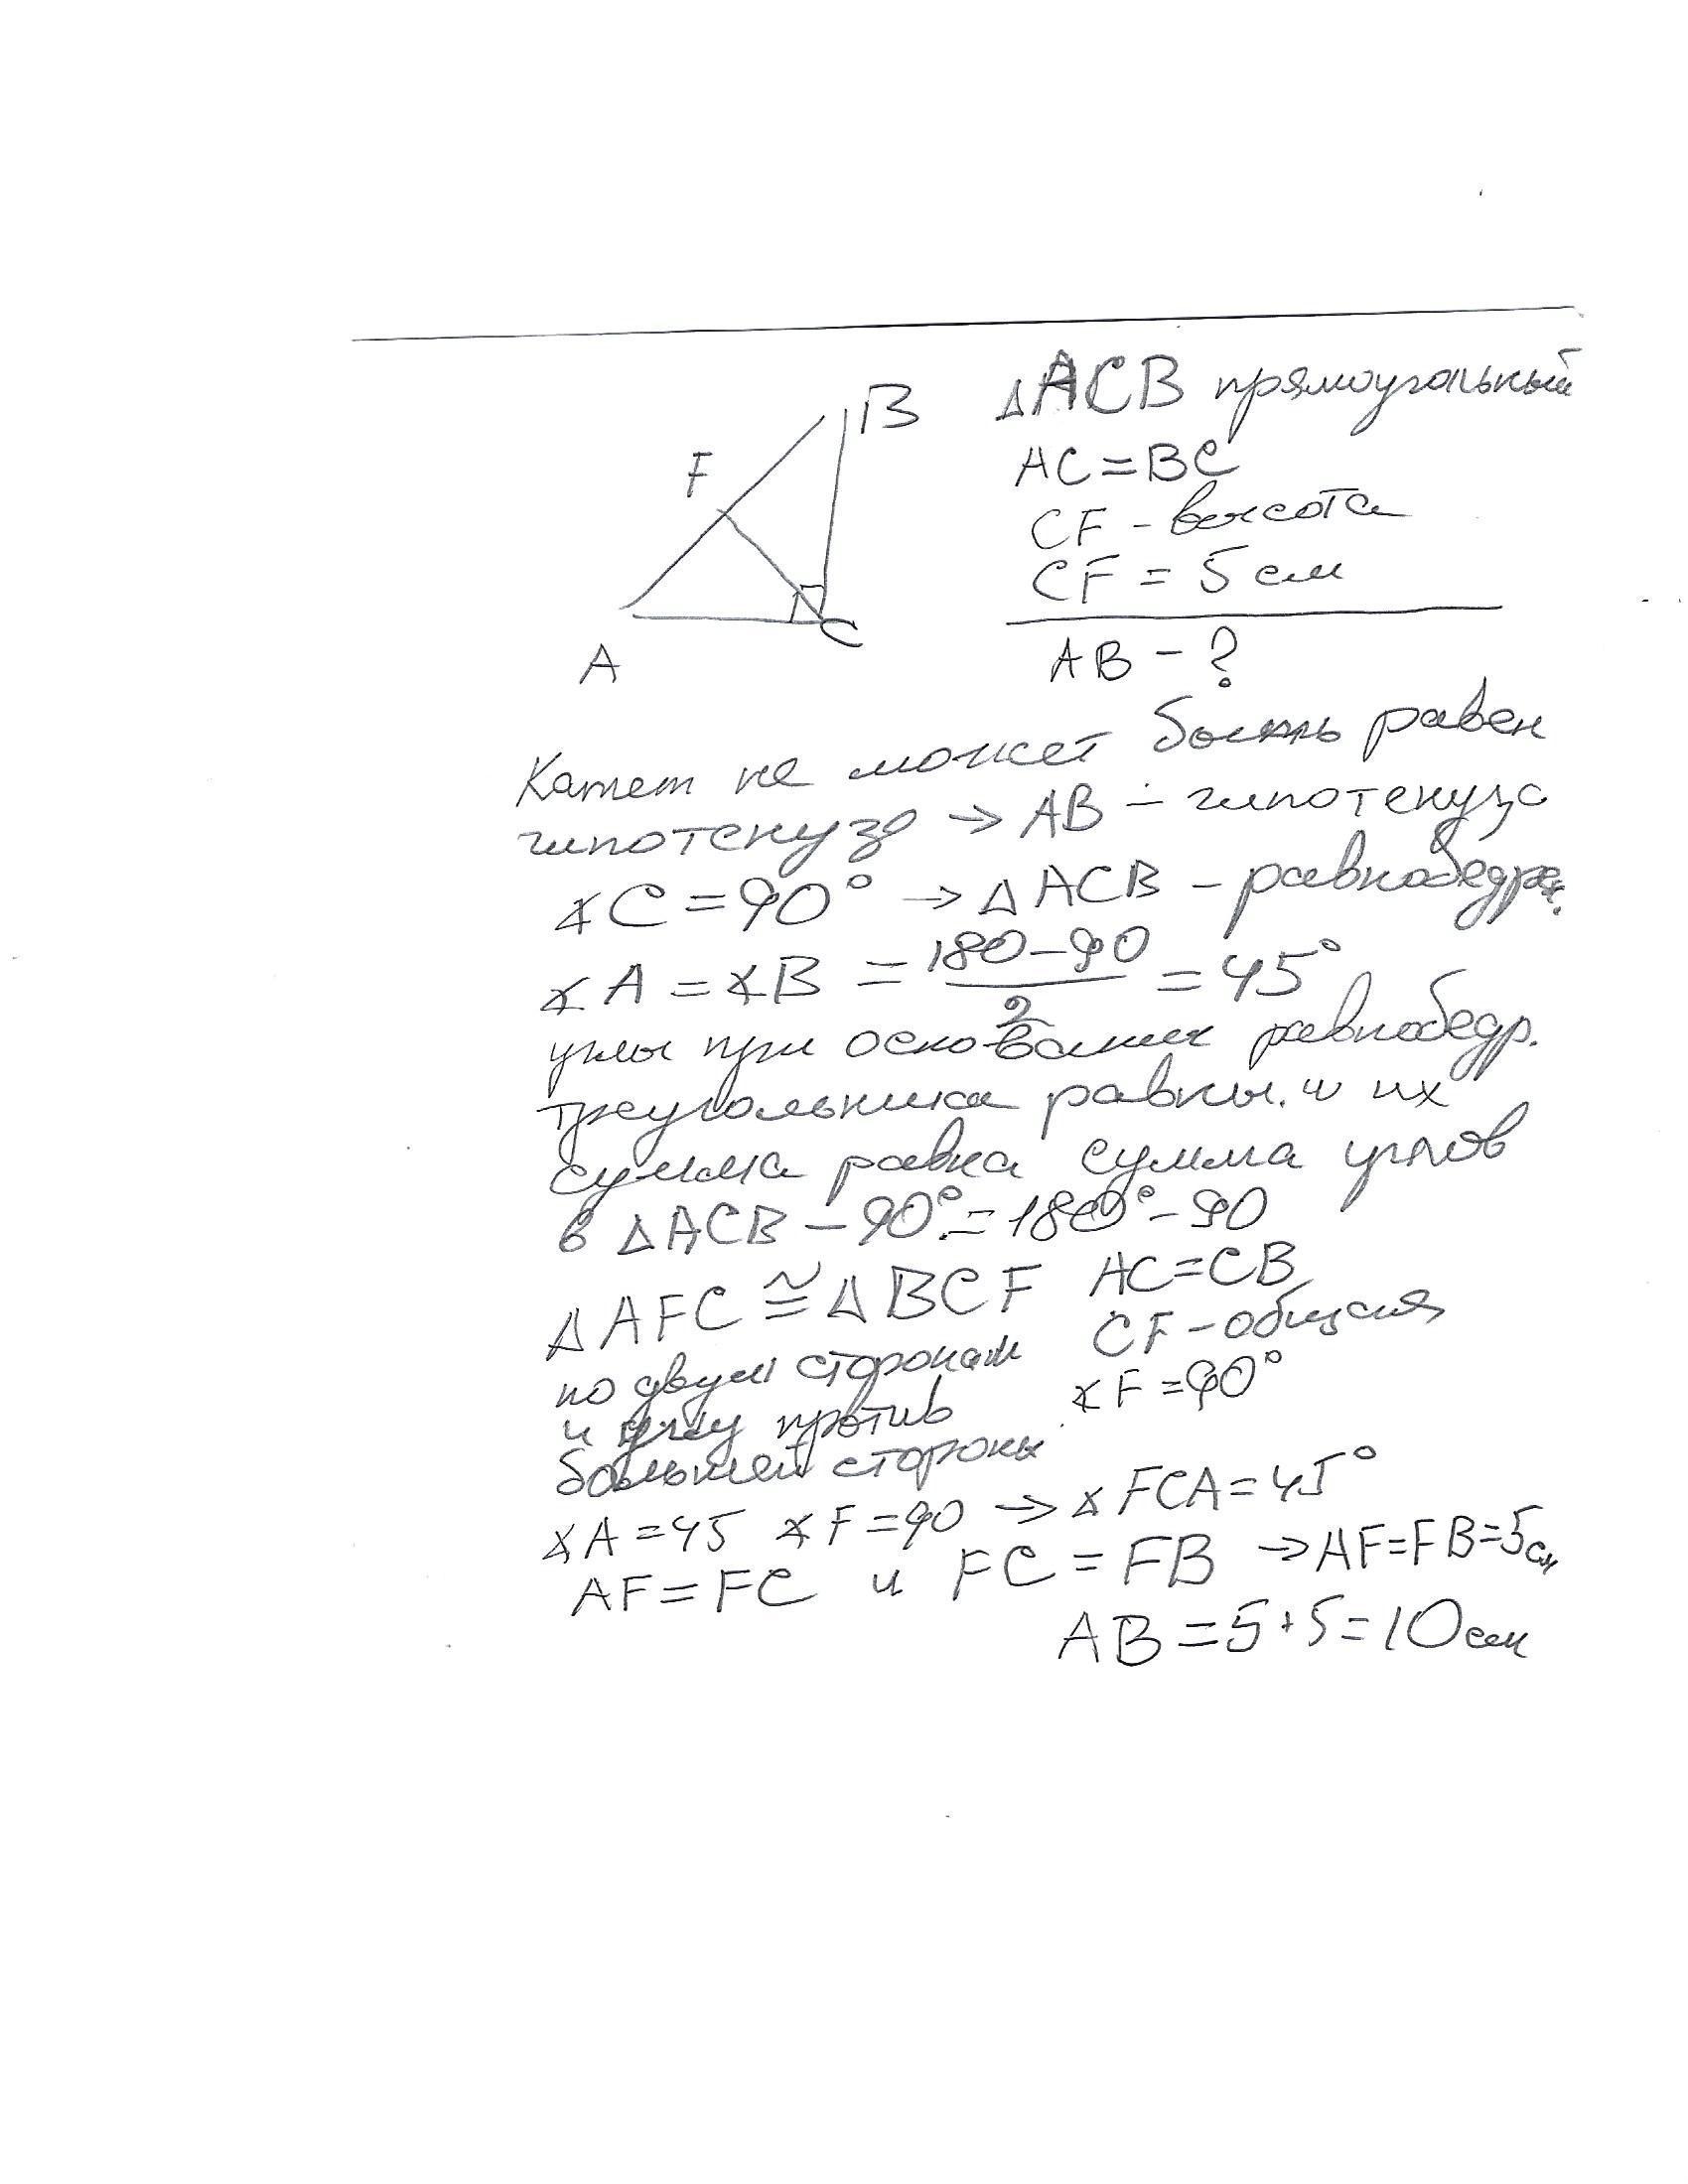 B
F
A
C
△ACB прямоугольный
AC=BC
CF - высота
CF = 5 см
AB - ?
Катет не может быть равен
гипотенузе → AB - гипотенуза
∡C=90° → △ACB - равнобедрен.
∡A=∡B = (180-90)/2 = 45°
углы при основании равнобедр.
треугольника равны. и их
сумма равна сумма углов
в △ACB - 90°=180°-90
△AFC ≅ △BCF AC=CB
CF - общая
по двум сторонам
∡F=90°
и углу против
большей стороны
∡A=45 ∡F=90 → ∡FCA=45°
AF=FC и FC=FB → AF=FB=5см
AB=5+5=10см